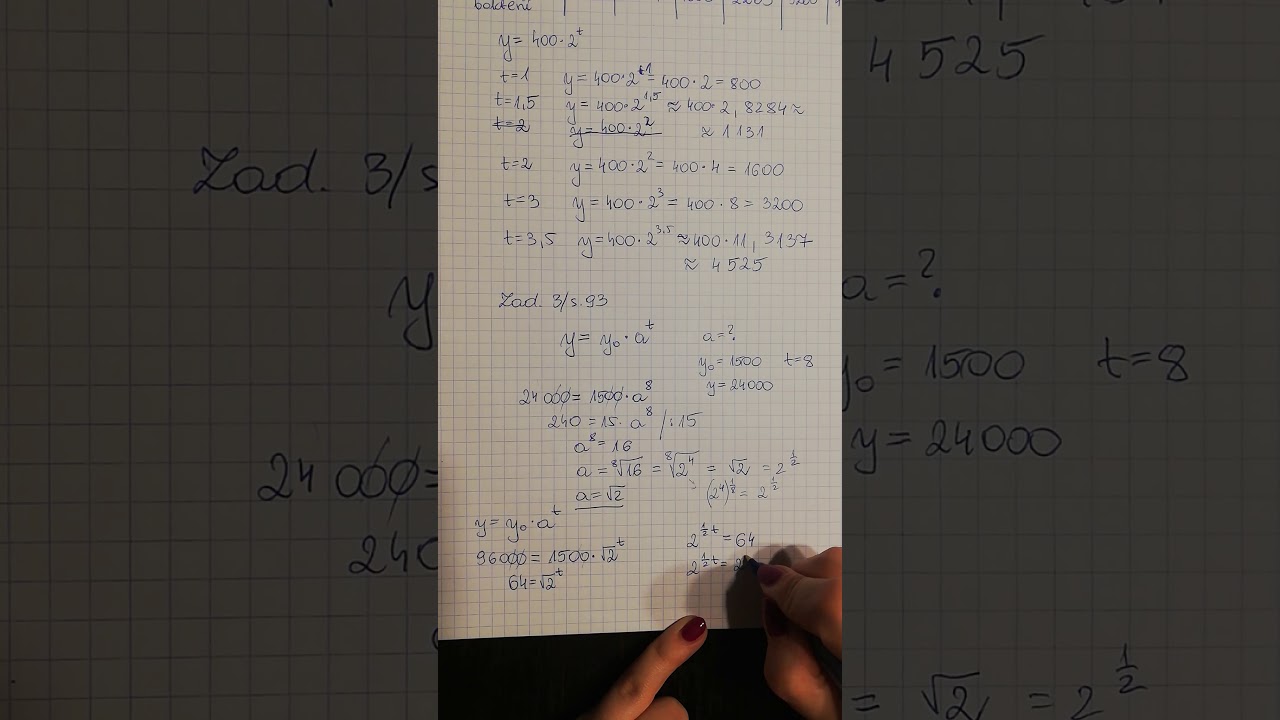 bakterii
y = 400·2^t
t=1 y = 400·2^1 = 400·2 = 800
t=1,5 y = 400·2^1,5 ≈ 400·2,8284 ≈
t=2 y = 400·2^2 ≈ 1131
t=2 y = 400·2^2 = 400·4 = 1600
t=3 y = 400·2^3 = 400·8 = 3200
t=3,5 y = 400·2^3,5 ≈ 400·11,3137
≈ 4525
Zad. 3/s.93
y = y₀·a^t a=?
y₀ = 1500 t=8
y = 24000
24000 = 1500·a^8
240 = 15·a^8 /:15
a^8 = 16
a = ⁸√16 = ⁸√2^4 = √2 = 2^½
(2^4)^⅛ = 2^½
a = √2
y = y₀·a^t
2^½t = 64
96000 = 1500·√2^t
2^½t = 2
64 = √2^t